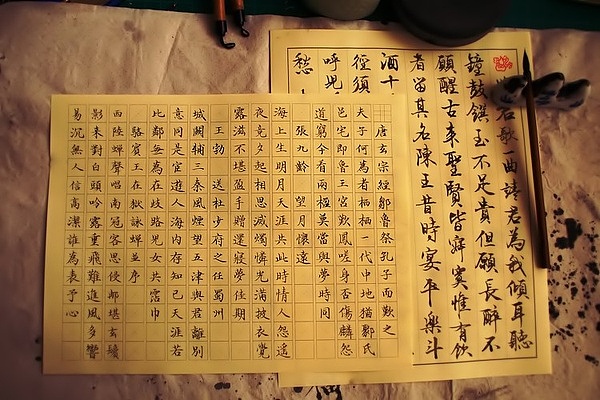 君歌一曲請君為我傾耳聽
鐘鼓饌玉不足貴但願長醉不
願醒古來聖賢皆寂寞惟有飲
者留其名陳王昔時宴平樂斗
酒十
徑須
呼兒
愁
唐玄宗經鄒魯祭孔子而歎之
夫子何為者栖栖一代中地猶鄹氏
邑宅即魯王宮歎鳳嗟身否傷麟怨
道窮今看兩楹奠當與夢時同
張九齡 望月懷遠
海上生明月天涯共此時情人怨遙
夜竟夕起相思滅燭憐光滿披衣覺
露滋不堪盈手贈還寢夢佳期
王勃 送杜少府之任蜀州
城闕輔三秦風煙望五津與君離別
意同是宦遊人海內存知己天涯若
比鄰無為在歧路兒女共霑巾
駱賓王在獄詠蟬並序
西陸蟬聲唱南冠客思侵那堪玄鬢
影來對白頭吟露重飛難進風多響
易沉無人信高潔誰為表予心